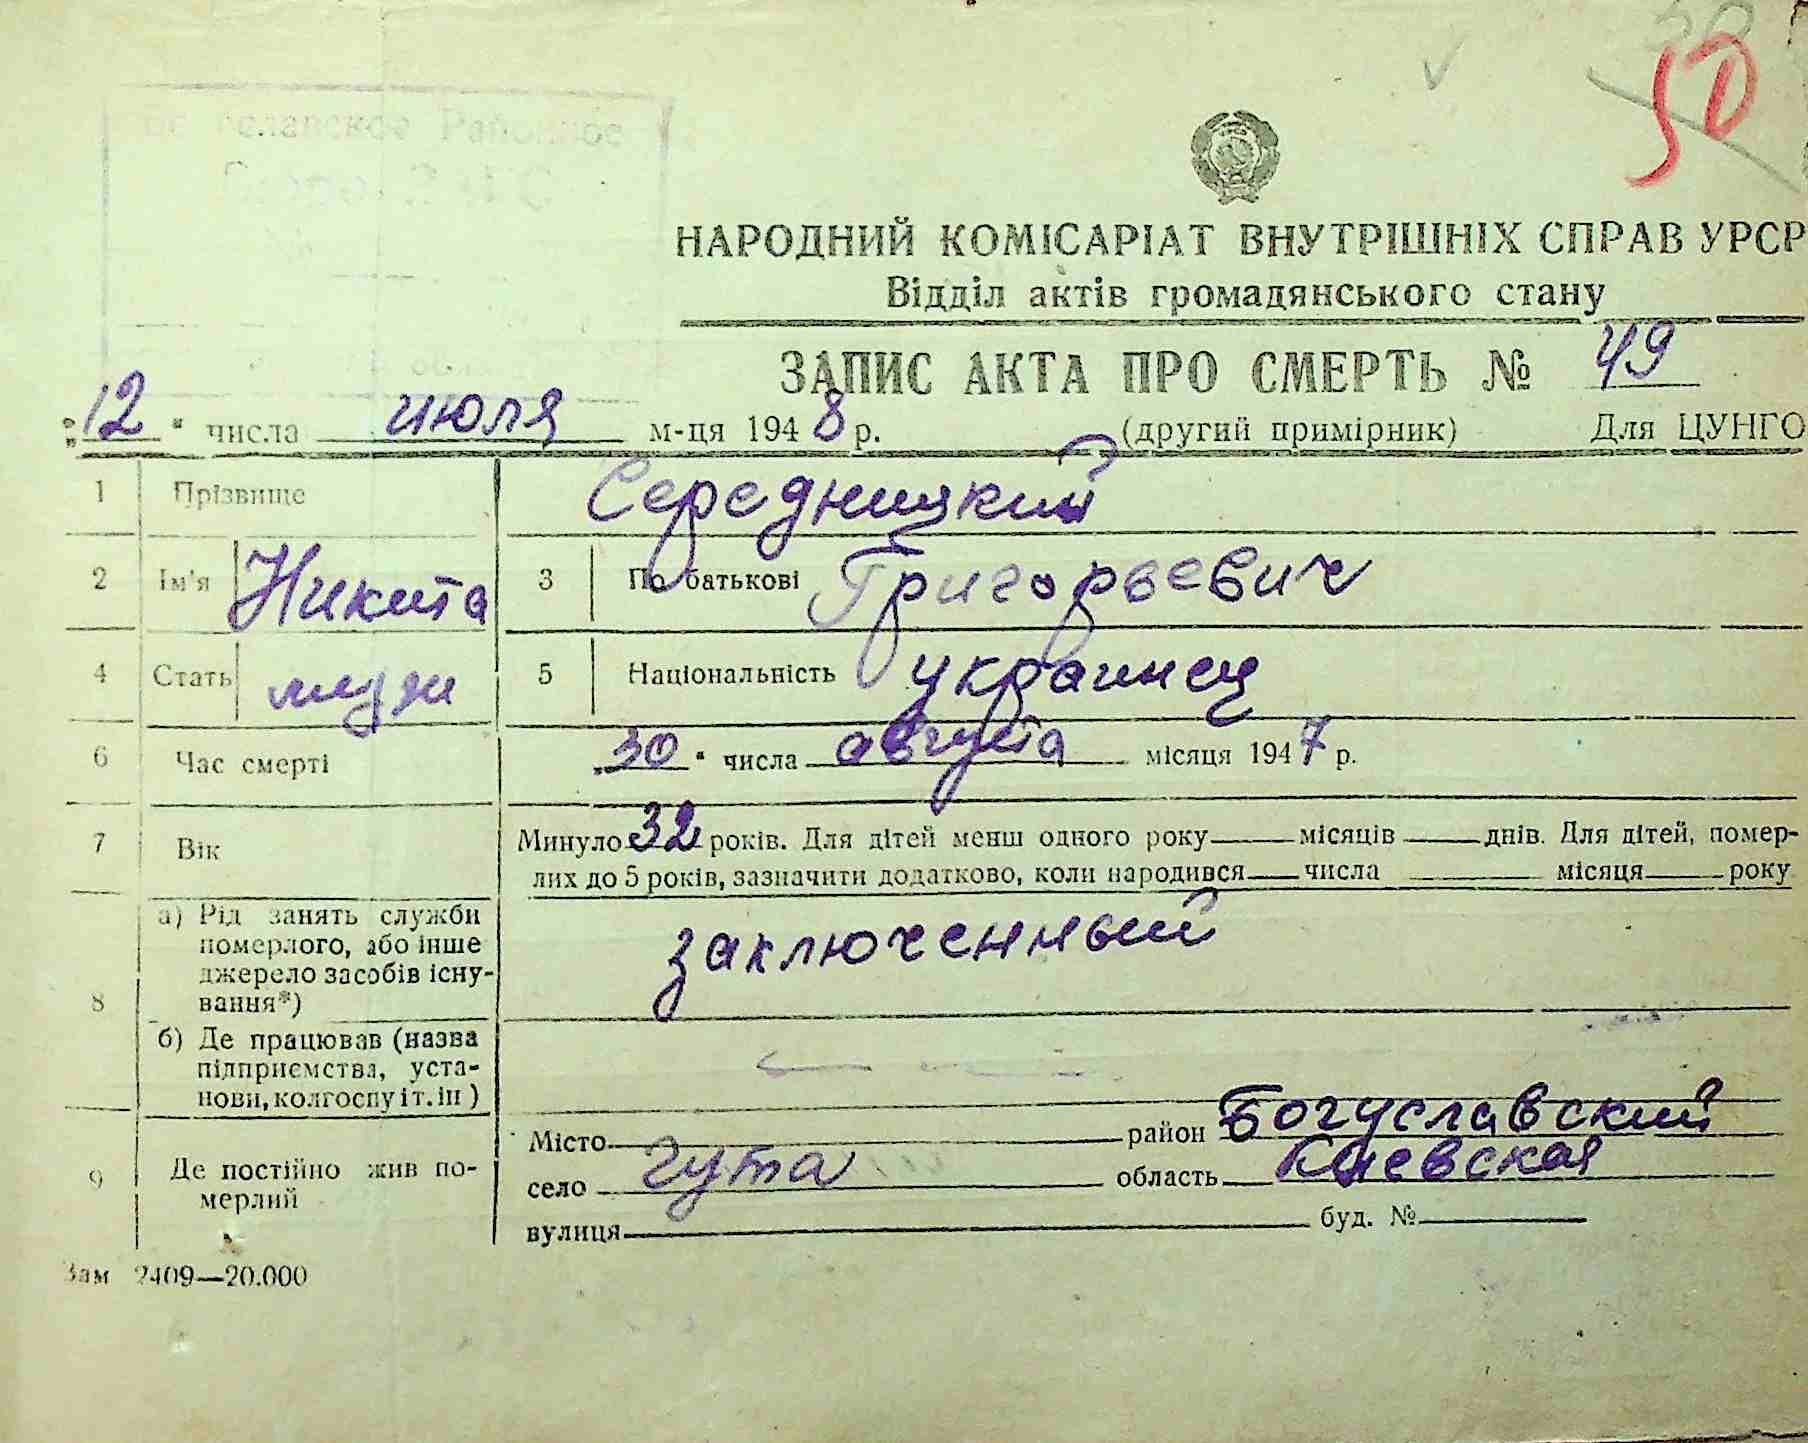 50
Районное
НАРОДНИЙ КОМІСАРІАТ ВНУТРІШНІХ СПРАВ УРСР
Відділ актів громадянського стану
ЗАПИС АКТА ПРО СМЕРТЬ № 49
"12" числа июля м-ця 1948 р. (другий примірник) Для ЦУНГО
1 Прізвище Середницкий
2 Ім'я Никита 3 По батькові Григорьевич
4 Стать мужи 5 Національність украинец
6 Час смерті 30 " числа августа місяця 1947 р.
7 Вік Минуло 32 років. Для дітей менш одного року місяців днів. Для дітей, помер-
лих до 5 років, зазначити додатково, коли народився числа місяця року
8 а) Рід занять служби померлого, або інше джерело засобів існу- вання*) заключенный
б) Де працював (назва підприємства, уста- нови, колгоспу і т. ін)
9 Де постійно жив по- мерлий
Місто район Богуславский
село Гута область Киевская
вулиця буд. №
Зам 2409—20.000